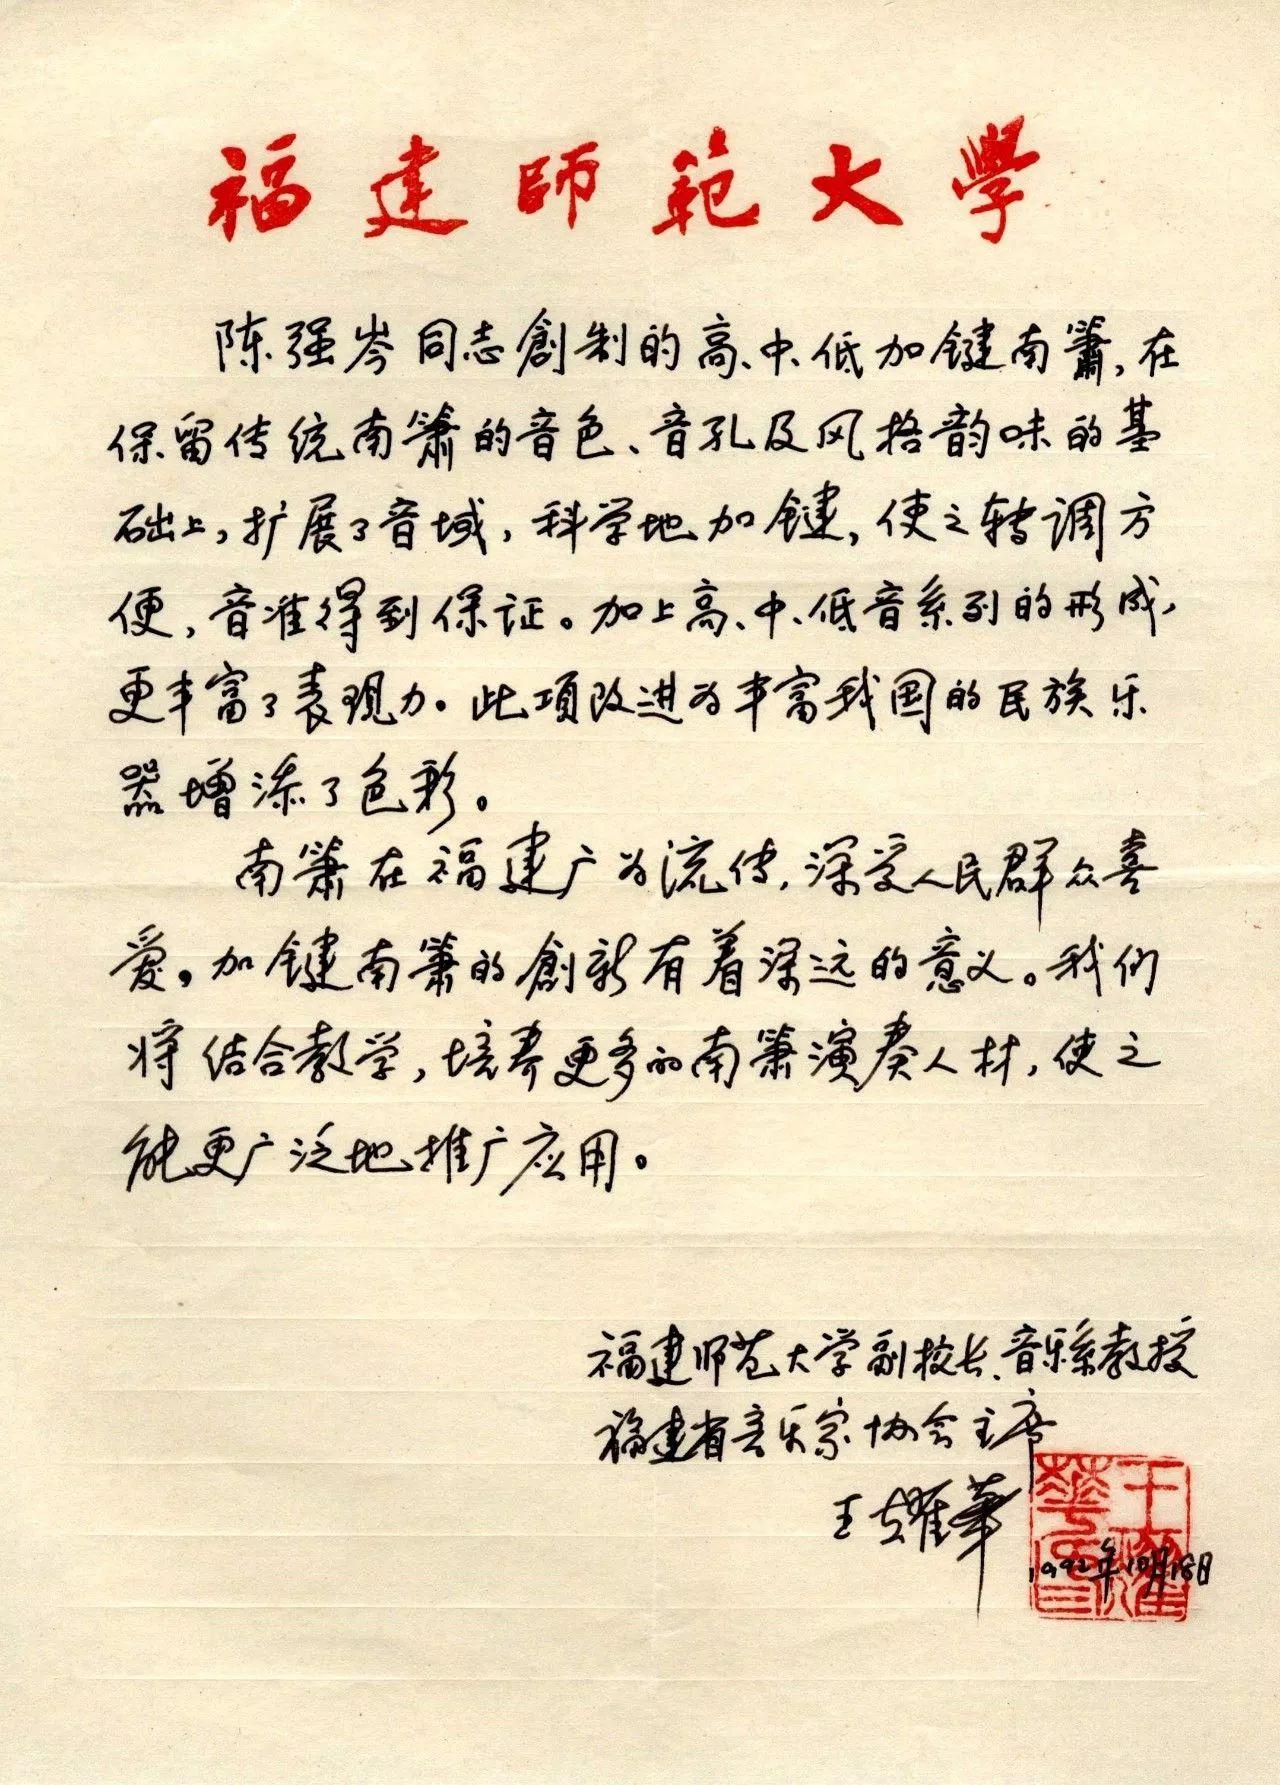 福建師範大學
陈强岑同志創制的高、中、低加键南簫,在
保留传统南箫的音色、音孔及风格韵味的基
础上,扩展了音域,科学地加键,使之转调方
便,音准得到保证。加上高、中、低音系列的形成,
更丰富了表现力。此项改进为丰富我国的民族乐
器增添了色彩。
南箫在福建广为流传,深受人民群众喜
爱。加键南箫的創新有着深远的意义。我们
将结合教学,培养更多的南箫演奏人材,使之
能更广泛地推广应用。
福建师范大学副校长、音乐系教授
福建省音乐家协会主席
王耀華
1992年10月18日